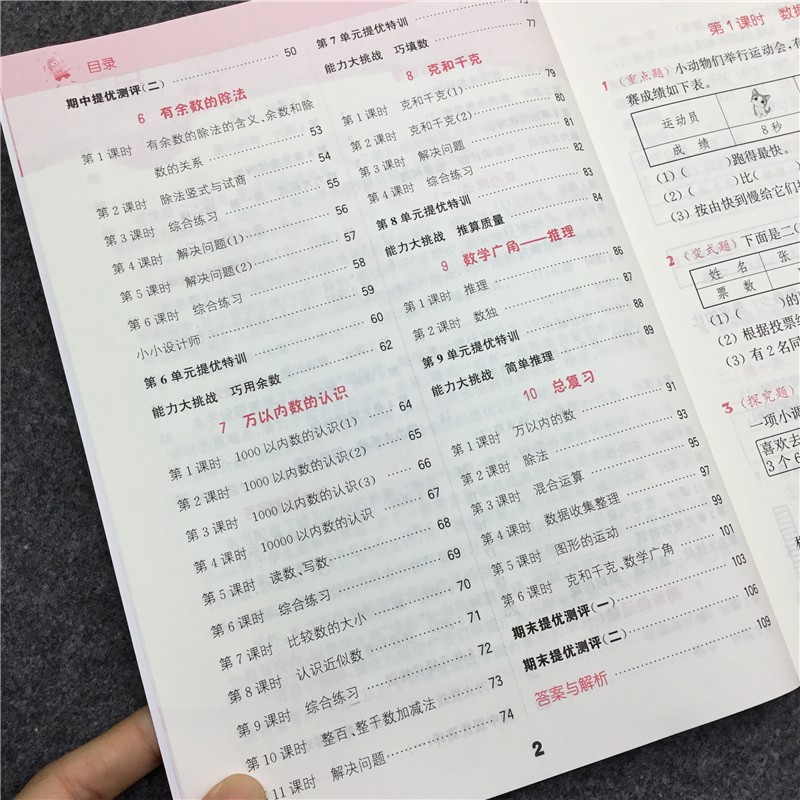 目录
期中提优测评(二) 50
6 有余数的除法
第1课时 有余数的除法的含义、余数和除
数的关系 53
第2课时 除法竖式与试商 54
第3课时 综合练习 55
第4课时 解决问题(1) 56
第5课时 解决问题(2) 57
第6课时 综合练习 58
小小设计师 59
第6单元提优特训 60
能力大挑战 巧用余数 62
7 万以内数的认识
第1课时 1000以内数的认识(1) 64
第2课时 1000以内数的认识(2) 65
第3课时 1000以内数的认识(3) 66
第4课时 10000以内数的认识 67
第5课时 读数、写数 68
第6课时 综合练习 69
第7课时 比较数的大小 70
第8课时 认识近似数 71
第9课时 综合练习 72
第10课时 整百、整千数加减法 73
11课时 解决问题 74
第7单元提优特训 75
能力大挑战 巧填数 77
8 克和千克
第1课时 克和千克(1) 79
第2课时 克和千克(2) 80
第3课时 解决问题 81
第4课时 综合练习 82
第8单元提优特训 83
能力大挑战 推算质量 84
9 数学广角——推理
第1课时 推理 86
第2课时 数独 87
第9单元提优特训 88
能力大挑战 简单推理 89
10 总复习
第1课时 万以内的数 91
第2课时 除法 93
第3课时 混合运算 95
第4课时 数据收集整理 97
第5课时 图形的运动 99
第6课时 克和千克、数学广角 101
期末提优测评(一) 103
期末提优测评(二) 106
答案与解析 109
2
第1课时 数据
1 (重点题) 小动物们举行运动会,
赛成绩如下表。
运动员
成绩 8秒
(1)( )跑得最快。
(2)( )比(
(3)按由快到慢给它们
2 (变式题) 下面是二(
姓名 张
票数
(1)( )的
(2)根据投票
(3)有2名同
3 (探究题)
一项小调
喜欢去
3个6